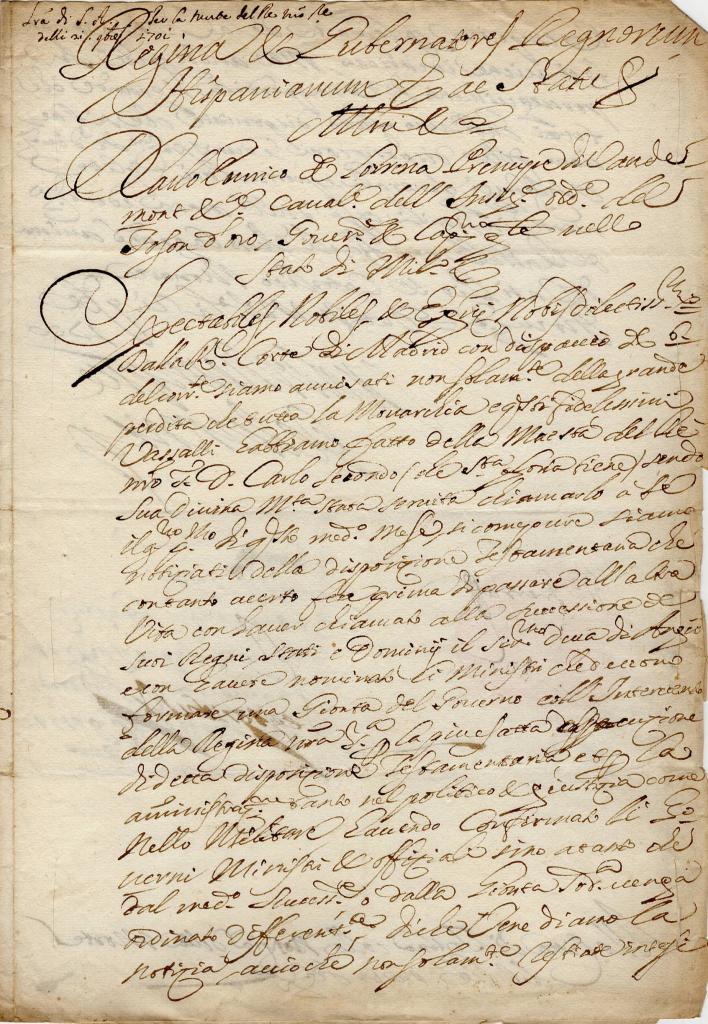 Per la morte del Re nro Sre
delli 21 9bre 1701
Regina & Gubernatores Regnorum
Hispaniarum & ac Status
Mlni &
Carlo Enrico di Lorena Prencipe di Vaude
mont &c. Cavalre dell' Insigne ord.e del
Toson d'oro, Gover.re & Cap.no Gle nello
Stato di Mil.o &
Spectabiles, Nobiles, & Egregij Nobis dilectiss.mi
Dalla R. Corte di Madrid con dispaccio de 6
del corr.te siamo avvisati non solam.te della grande
perdita che tutta la Monarchia e gl'altri fidelissimi
Vassalli habbiamo fatto della Maestà del Re
nro Sre D. Carlo Secondo (che S.ta Gloria tiene) sendo
Sua Divina M.tà stata servita chiamarlo à Se
il p.mo di q.sto med.o Mese, si come pure siamo
notiziati della disposizione Testamentaria che
con tanto accerto fece prima di passare all'altra
Vita con haver chiamato alla successione de
suoi Regni, Stati e Dominij il Ser.mo Duca di Angiò
e con havere nominati li Ministri che devono
formare una Gionta del Governo coll'Intervento
della Regina nra S.ra p la più esatta essecuzione
di detta disposizione Testamentaria e p la
amministraz.ne tanto nel politico & giustizia come
nello Militare havendo Confirmati li Go
verni Ministri & offiziali sino a tanto che
dal med.o Success.re o dalla Gionta sod.a venga
ordinato differentem.te di che Vene diamo la
notizia acciochè non solam.te restiate intesi